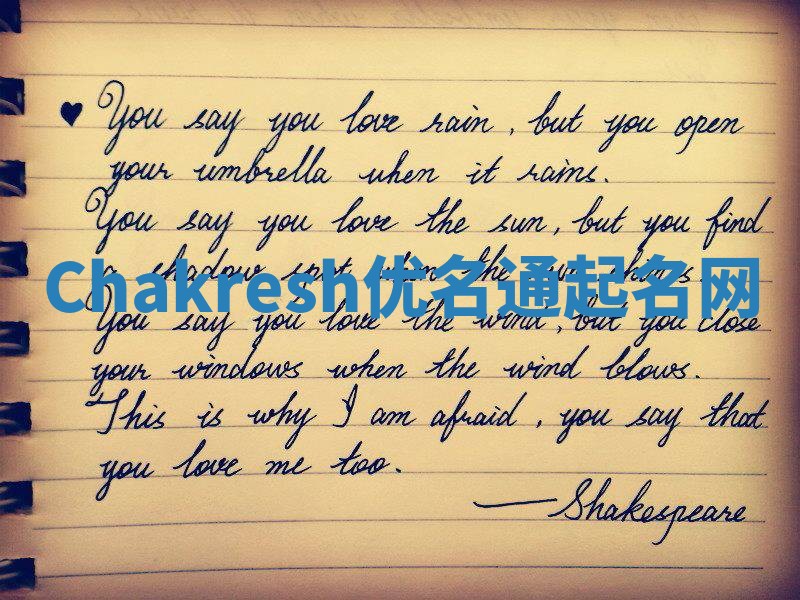 ♥ You say you love rain, but you open
your umbrella when it rains.
You say you love the sun, but you find
a shadow spot when the sun shines.
Chakresh优名通起名网
You say you love the wind, but you close
your windows when the wind blows.
This is why I am afraid, you say that
you love me too.
—Shakespeare